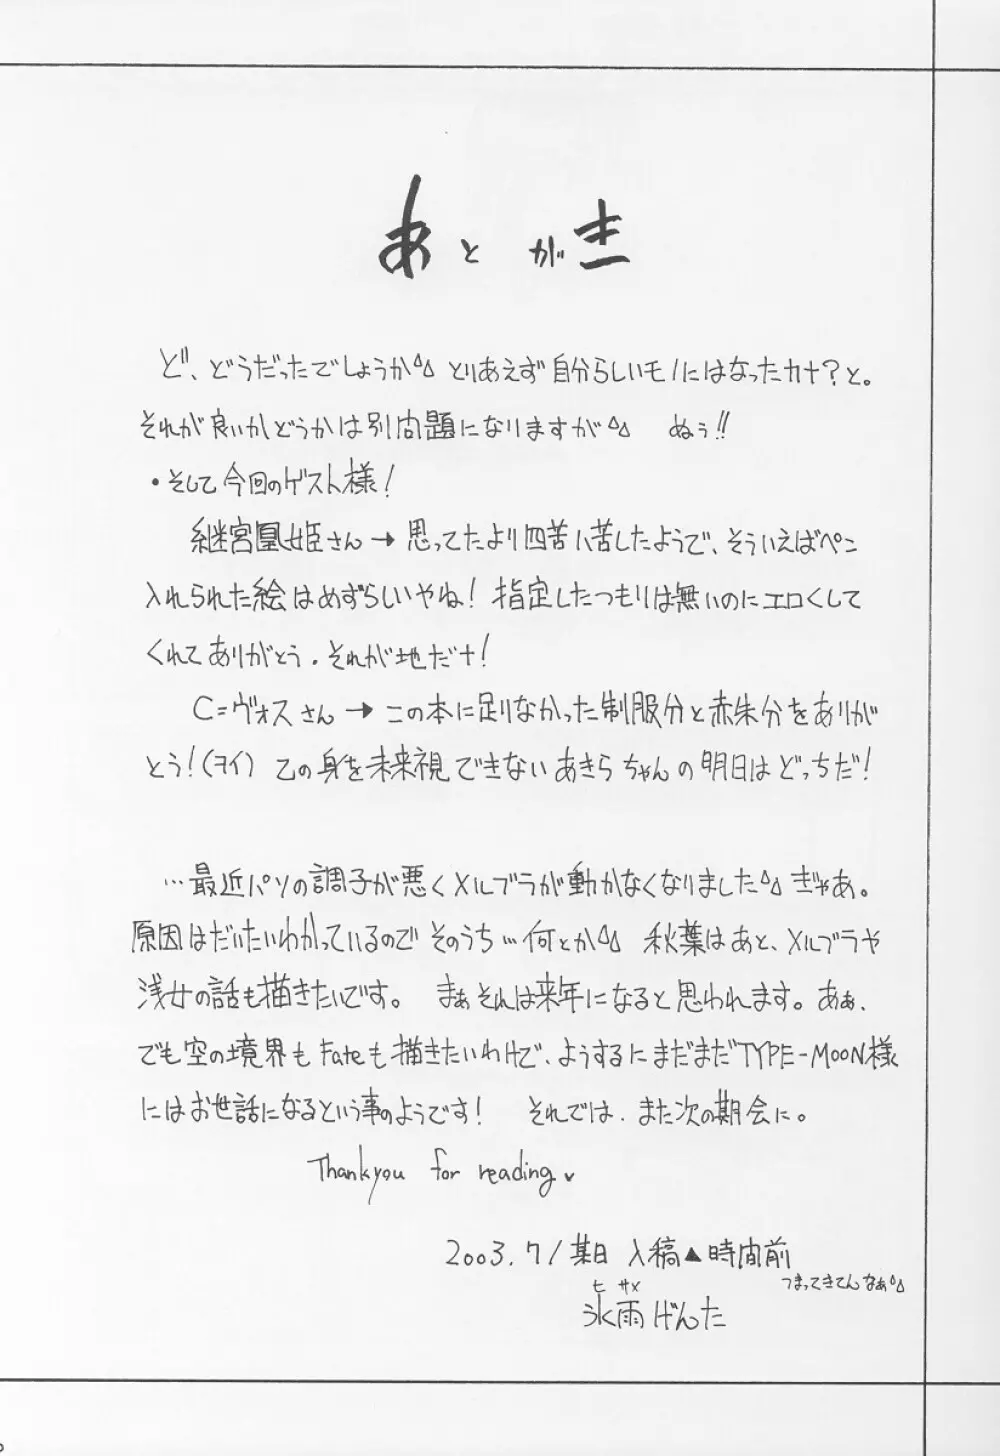 あとがき
ど、どうだったでしょうか^^ とりあえず自分らしいモノにはなったカナ?と。
それが良いかどうかは別問題になりますが^^ ぬぅ!!
・そして今回のゲスト様!
継宮凰姫さん→思ってたより四苦八苦したようで、そういえばペン
入れられた絵はめずらしいやね!指定したつもりは無いのにエロくして
くれてありがとう。それが地だナ!
C=ヴォスさん→この本に足りなかった制服分と赤朱分をありが
とう!(ヲイ) 己の身を未来視できないあきらちゃんの明日はどっちだ!
…最近パソの調子が悪くメルブラが動かなくなりました^^ ぎゃあ。
原因はだいたいわかっているのでそのうち…何とか^^ 秋葉はあと、メルブラや
浅女の話も描きたいです。 まぁそれは来年になると思われます。あぁ、
でも空の境界もFateも描きたいわけで、ようするにまだまだTYPE-MOON様
にはお世話になるという事のようです! それでは、また次の期会に。
Thankyou for reading
2003.7/某日 入稿▲時間前
つまってきてんなぁ^^
ヒサメ
氷雨げんた